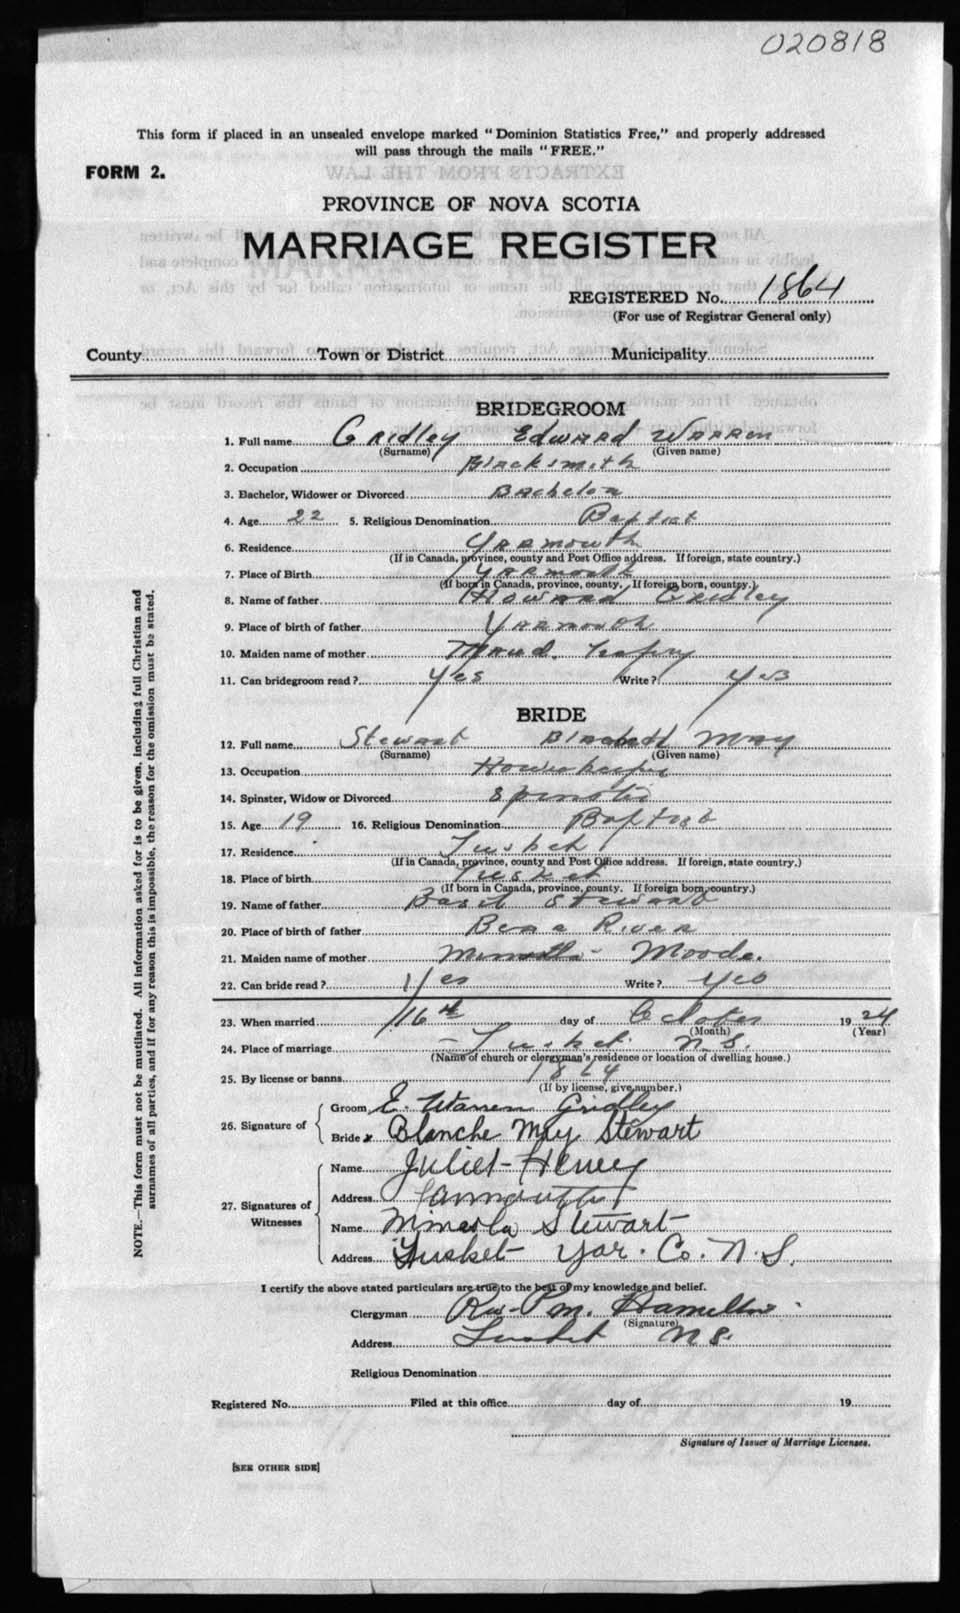 020818
This form if placed in an unsealed envelope marked "Dominion Statistics Free," and properly addressed
will pass through the mails "FREE."
FORM 2.
PROVINCE OF NOVA SCOTIA
MARRIAGE REGISTER
REGISTERED No. 1864
(For use of Registrar General only)
County Town or District Municipality
BRIDEGROOM
1. Full name Gridley Edward Warren
(Surname) (Given name)
2. Occupation Blacksmith
3. Bachelor, Widower or Divorced Bachelor
4. Age 22 5. Religious Denomination Baptist
6. Residence Yarmouth
(If in Canada, province, county and Post Office address. If foreign, state country.)
7. Place of Birth Yarmouth
(If born in Canada, province, county. If foreign born, country.)
8. Name of father Howard Gridley
9. Place of birth of father Yarmouth
10. Maiden name of mother Maud.
11. Can bridegroom read? Yes Write? Yes
BRIDE
12. Full name Stewart May
(Surname) (Given name)
13. Occupation Housekeeper
14. Spinster, Widow or Divorced Spinster
15. Age 19 16. Religious Denomination Baptist
17. Residence Tusket
(If in Canada, province, county and Post Office address. If foreign, state country.)
18. Place of birth Tusket
(If born in Canada, province, county. If foreign born, country.)
19. Name of father Basil Stewart
20. Place of birth of father River
21. Maiden name of mother Moode.
22. Can bride read? Yes Write? Yes
23. When married 16th day of October 1924
(Month) (Year)
24. Place of marriage Tusket N.S.
(Name of church or clergyman's residence or location of dwelling house.)
25. By license or banns 1864
(If by license, give number.)
26. Signature of
Groom E. Warren Gridley
Bride x Blanche May Stewart
27. Signatures of Witnesses
Name Juliet
Address Yarmouth
Name Stewart
Address Tusket Yar. Co. N.S.
I certify the above stated particulars are true to the best of my knowledge and belief.
Clergyman Rev P M. Hamilton
(Signature)
Address Tusket N S.
Religious Denomination
Registered No. Filed at this office day of 19
Signature of Issuer of Marriage Licenses.
[SEE OTHER SIDE]
NOTE.—This form must not be mutilated. All information asked for is to be given, including full Christian and
surnames of all parties, and if for any reason this is impossible, the reason for the omission must be stated.